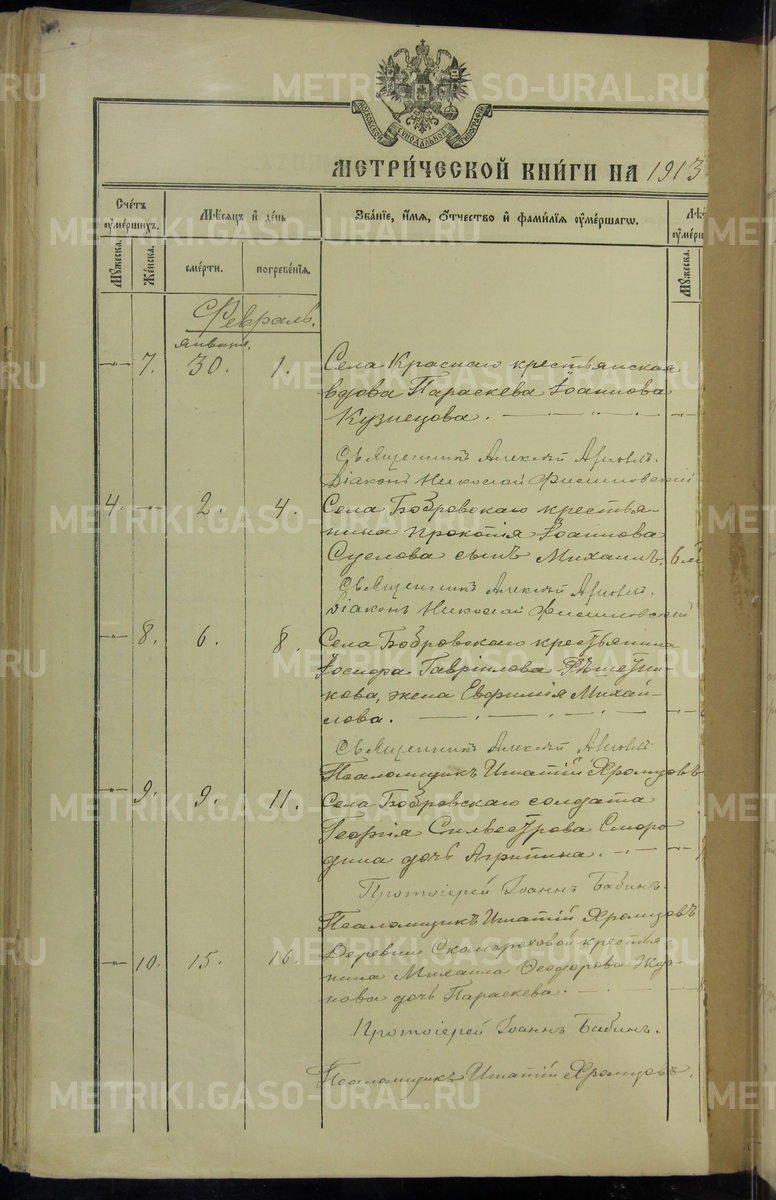 МОСКОВСКОЙ СѴНОДАЛЬНОЙ ТИПОГРАФІИ
МЕТРИ́ЧЕСКОЙ КНИ́ГИ НА 1913
Сче́тъ ᲂумершихъ.
Мѣсяцъ и҆ де́нь
Зва́нїе, и҆́мя, ѻ҆́тчество и҆ фами́лїя ᲂумершагѡ.
Мꙋжеска.
Же́нска.
сме́рти.
погребе́нїя.
Мꙋжеска.
Февраль.
Января.
-"- 7. 30. 1. Села Краснаго крестьянская
вдова Параскева Іоаннова
Кузнецова. -"-
Священникъ Алексій
Діаконъ Николай
4. -"- 2. 4. Села Бобровскаго крестья-
нина Прокопія Іоаннова
Суслова сынъ Михаилъ. 6 м
Священникъ Алексій
Діаконъ Николай
-"- 8. 6. 8. Села Бобровскаго крестьянина
Іосифа Гавріилова Рѣшетни-
кова, жена Евфимія Михай-
лова. -"-
Священникъ Алексій
Псаломщикъ Игнатій Хромцовъ
-"- 9. 9. 11. Села Бобровскаго солдата
Георгія Сильвестрова Сморо
дина дочь Агрипина.
Протоіерей Іоаннъ Бабинъ.
Псаломщикъ Игнатій Хромцовъ
-"- 10. 15. 16. Деревни Скомороховой крестья
нина Михаила Ѳеодорова Жда-
нова дочь Параскева.
Протоіерей Іоаннъ Бабинъ.
Псаломщикъ Игнатій Хромцовъ.
METRIKI.GASO-URAL.RU